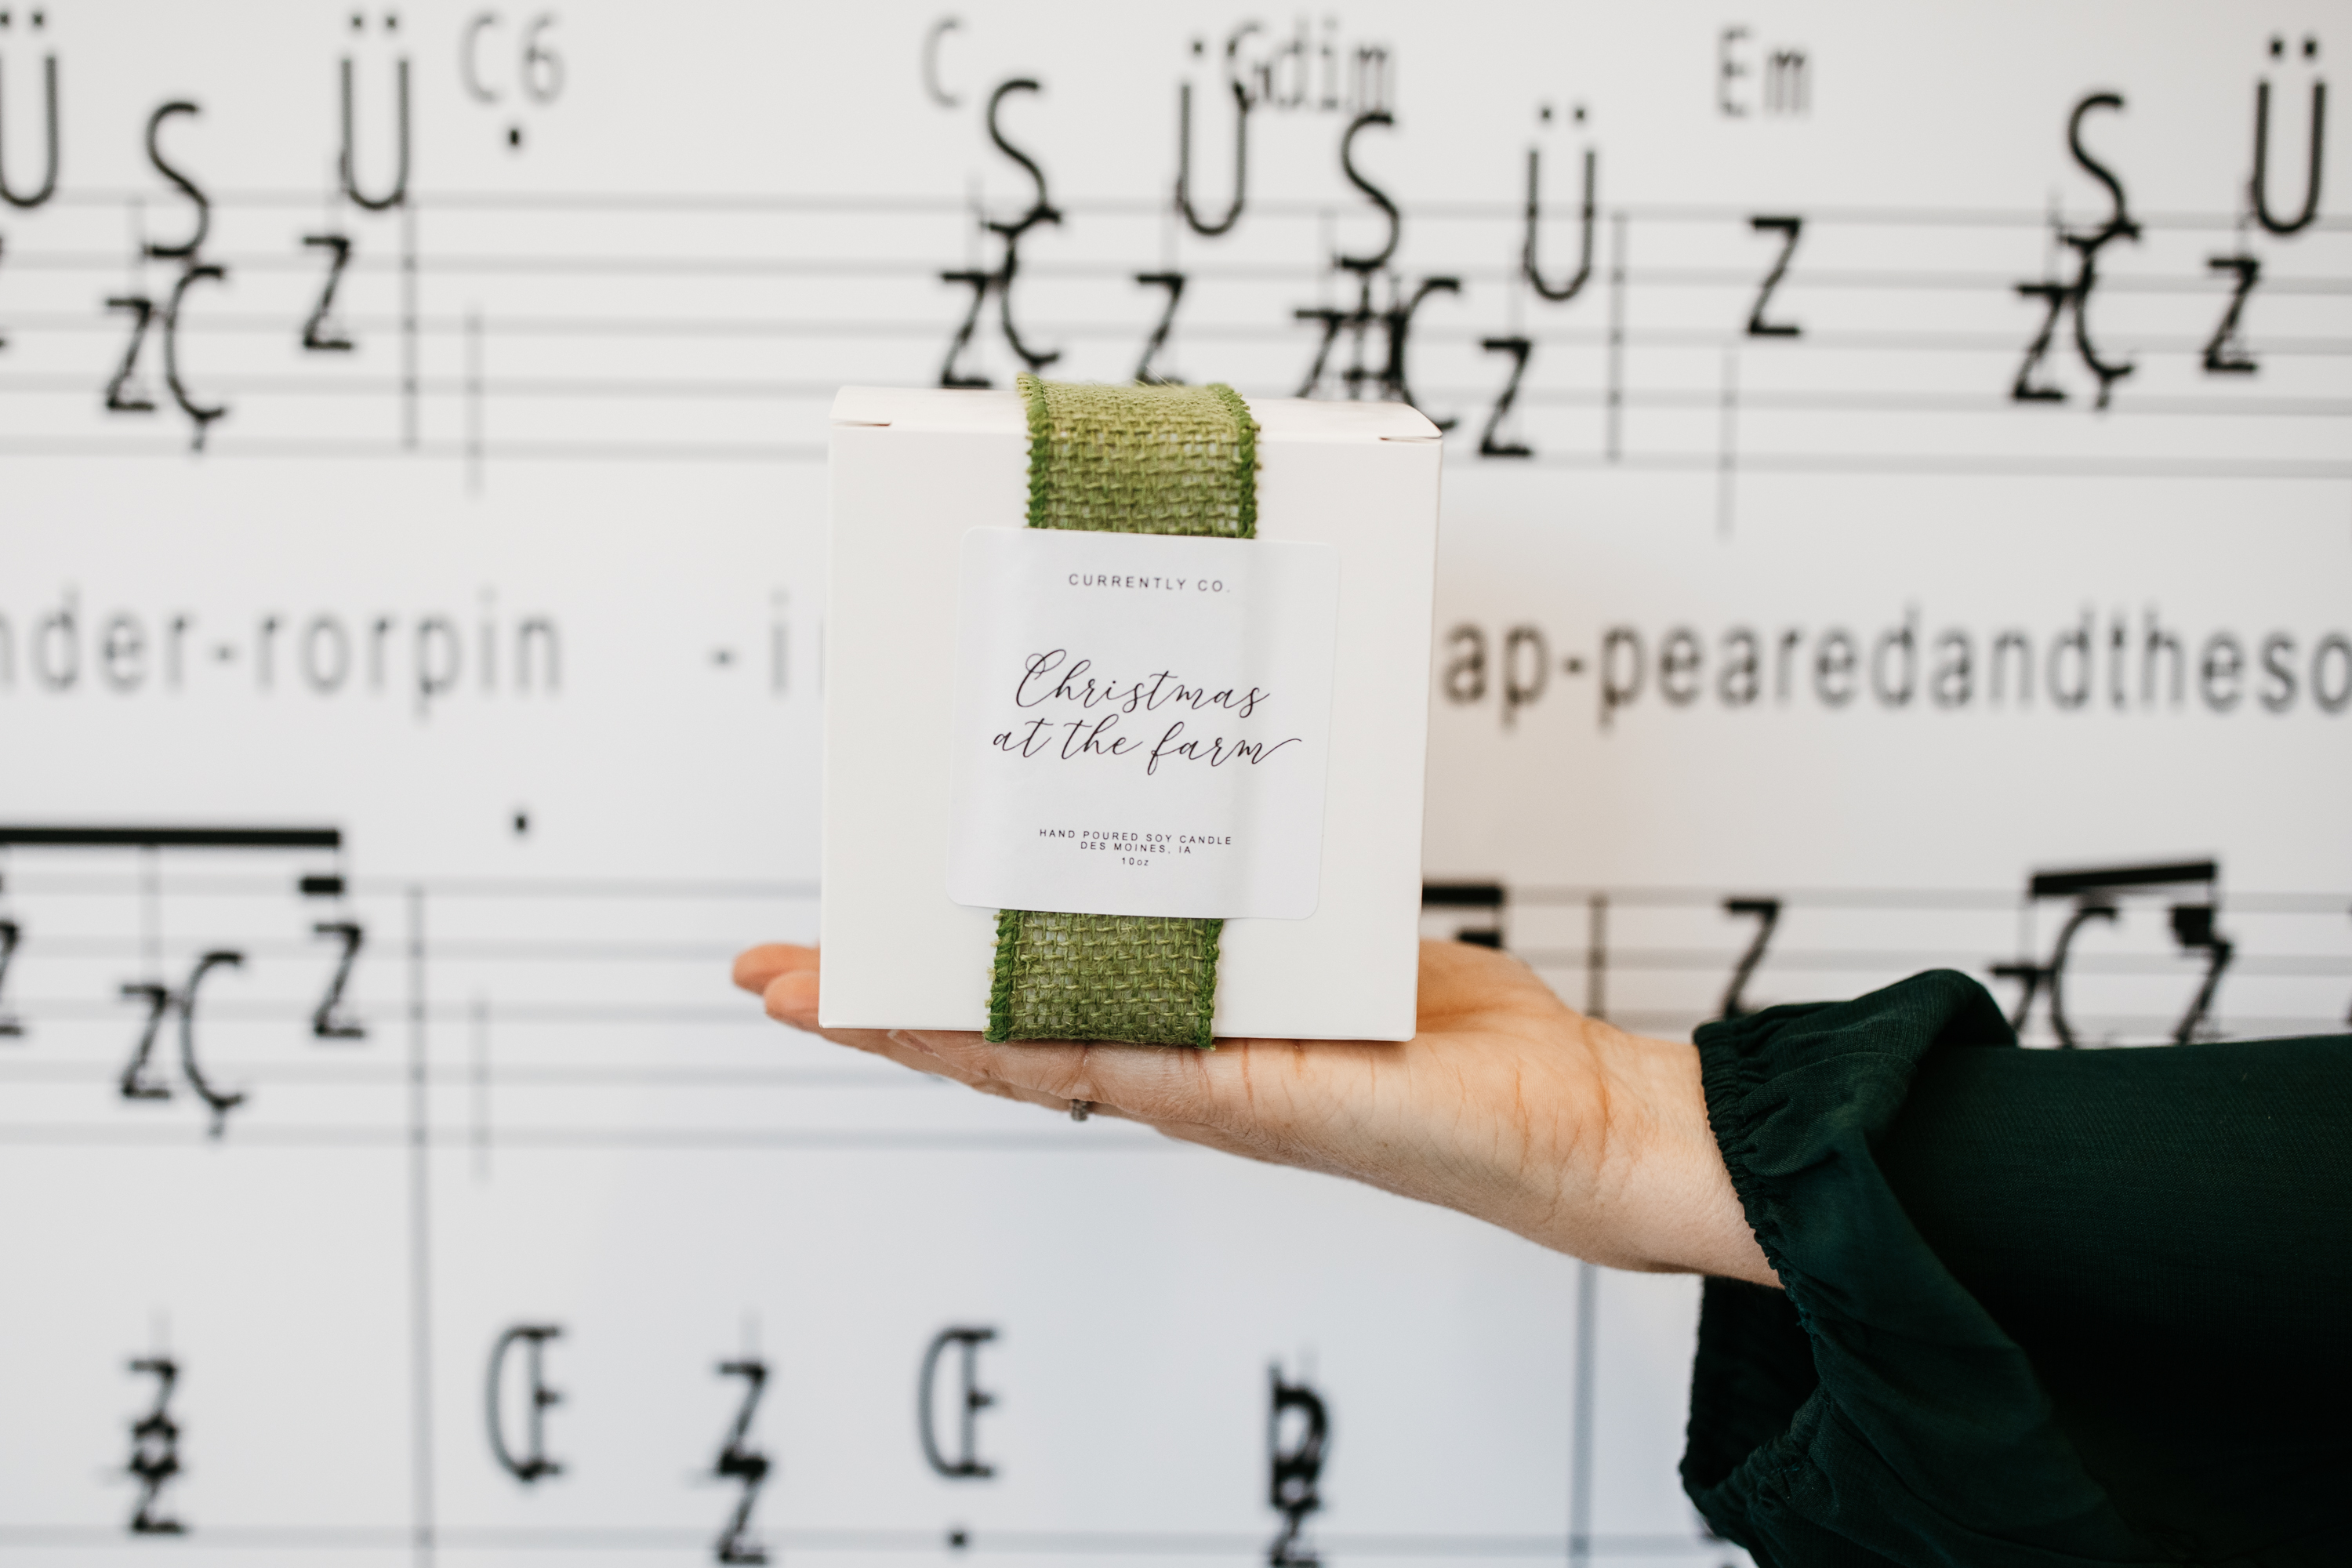 Ü S Ü C6 C S Ü Gdim S Ü Em S Ü
ZÇ Z ZÇ Z Z#Ç Z Z ZÇ Z
nder-rorpin - i ap-pearedandtheso
CURRENTLY CO.
Christmas
at the farm
HAND POURED SOY CANDLE
DES MOINES, IA
10oz
ZÇ Z Z
Œ Z Œ